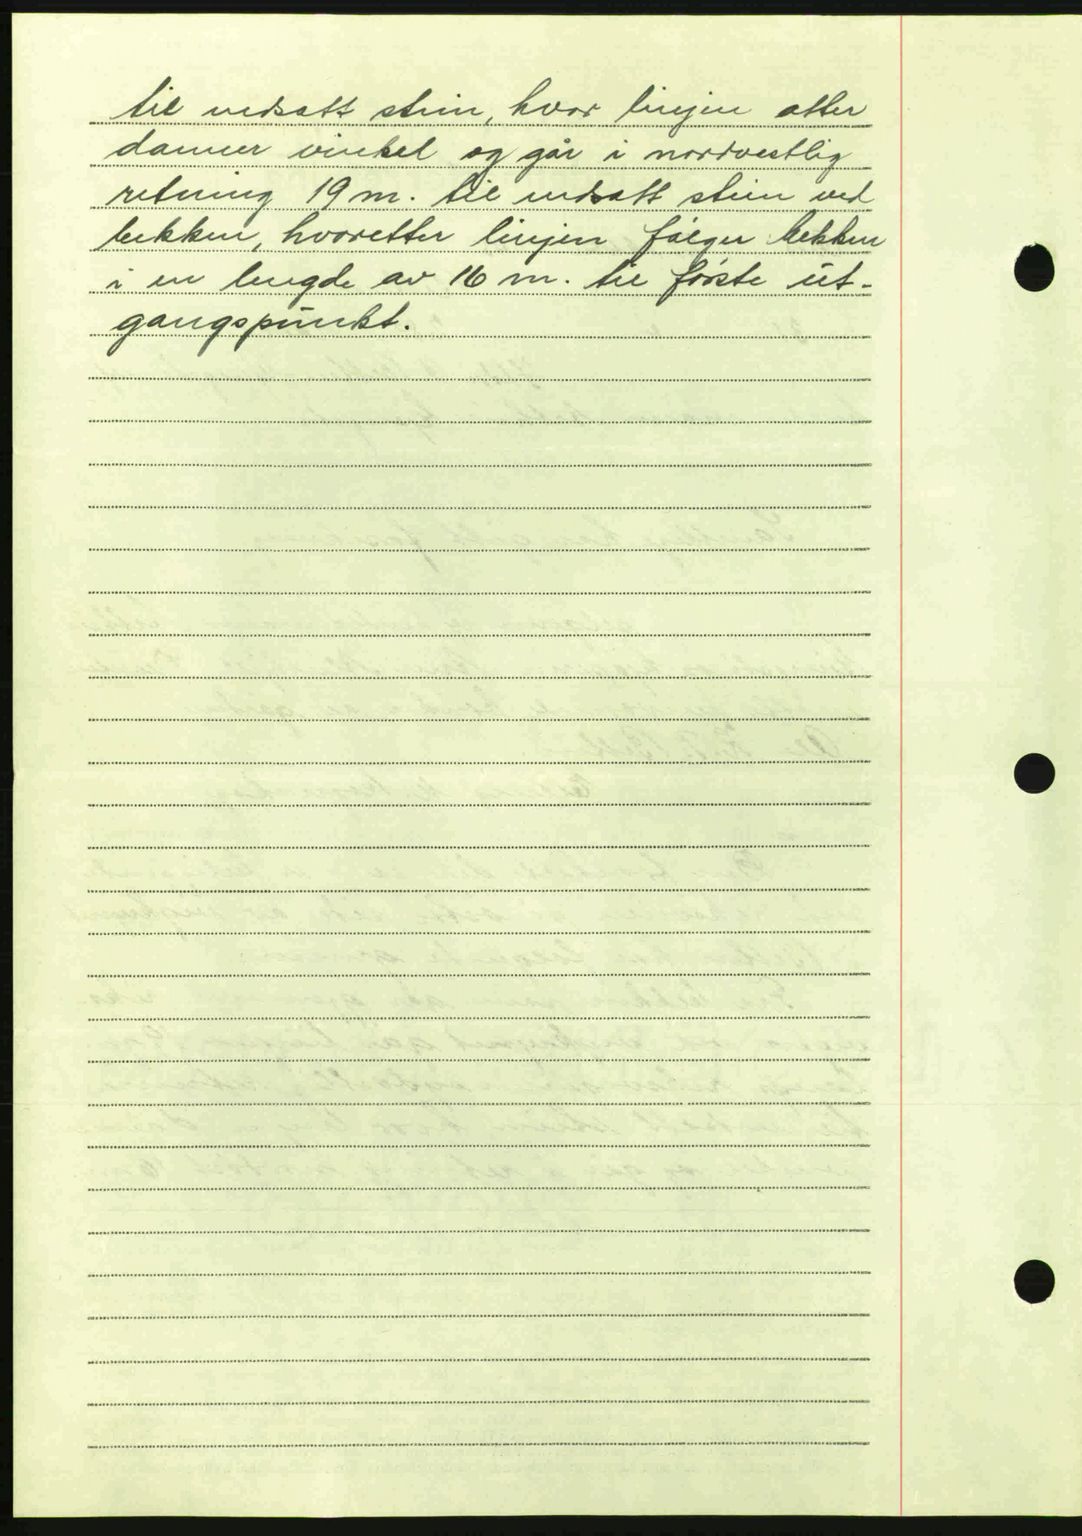 til nedsatt stein, hvor linjen atter
danner vinkel og går i nordvestlig
retning 19 m. til nedsatt stein ved
bekken, hvoretter linjen følger bekken
i en lengde av 16 m. til første ut-
gangspunkt.